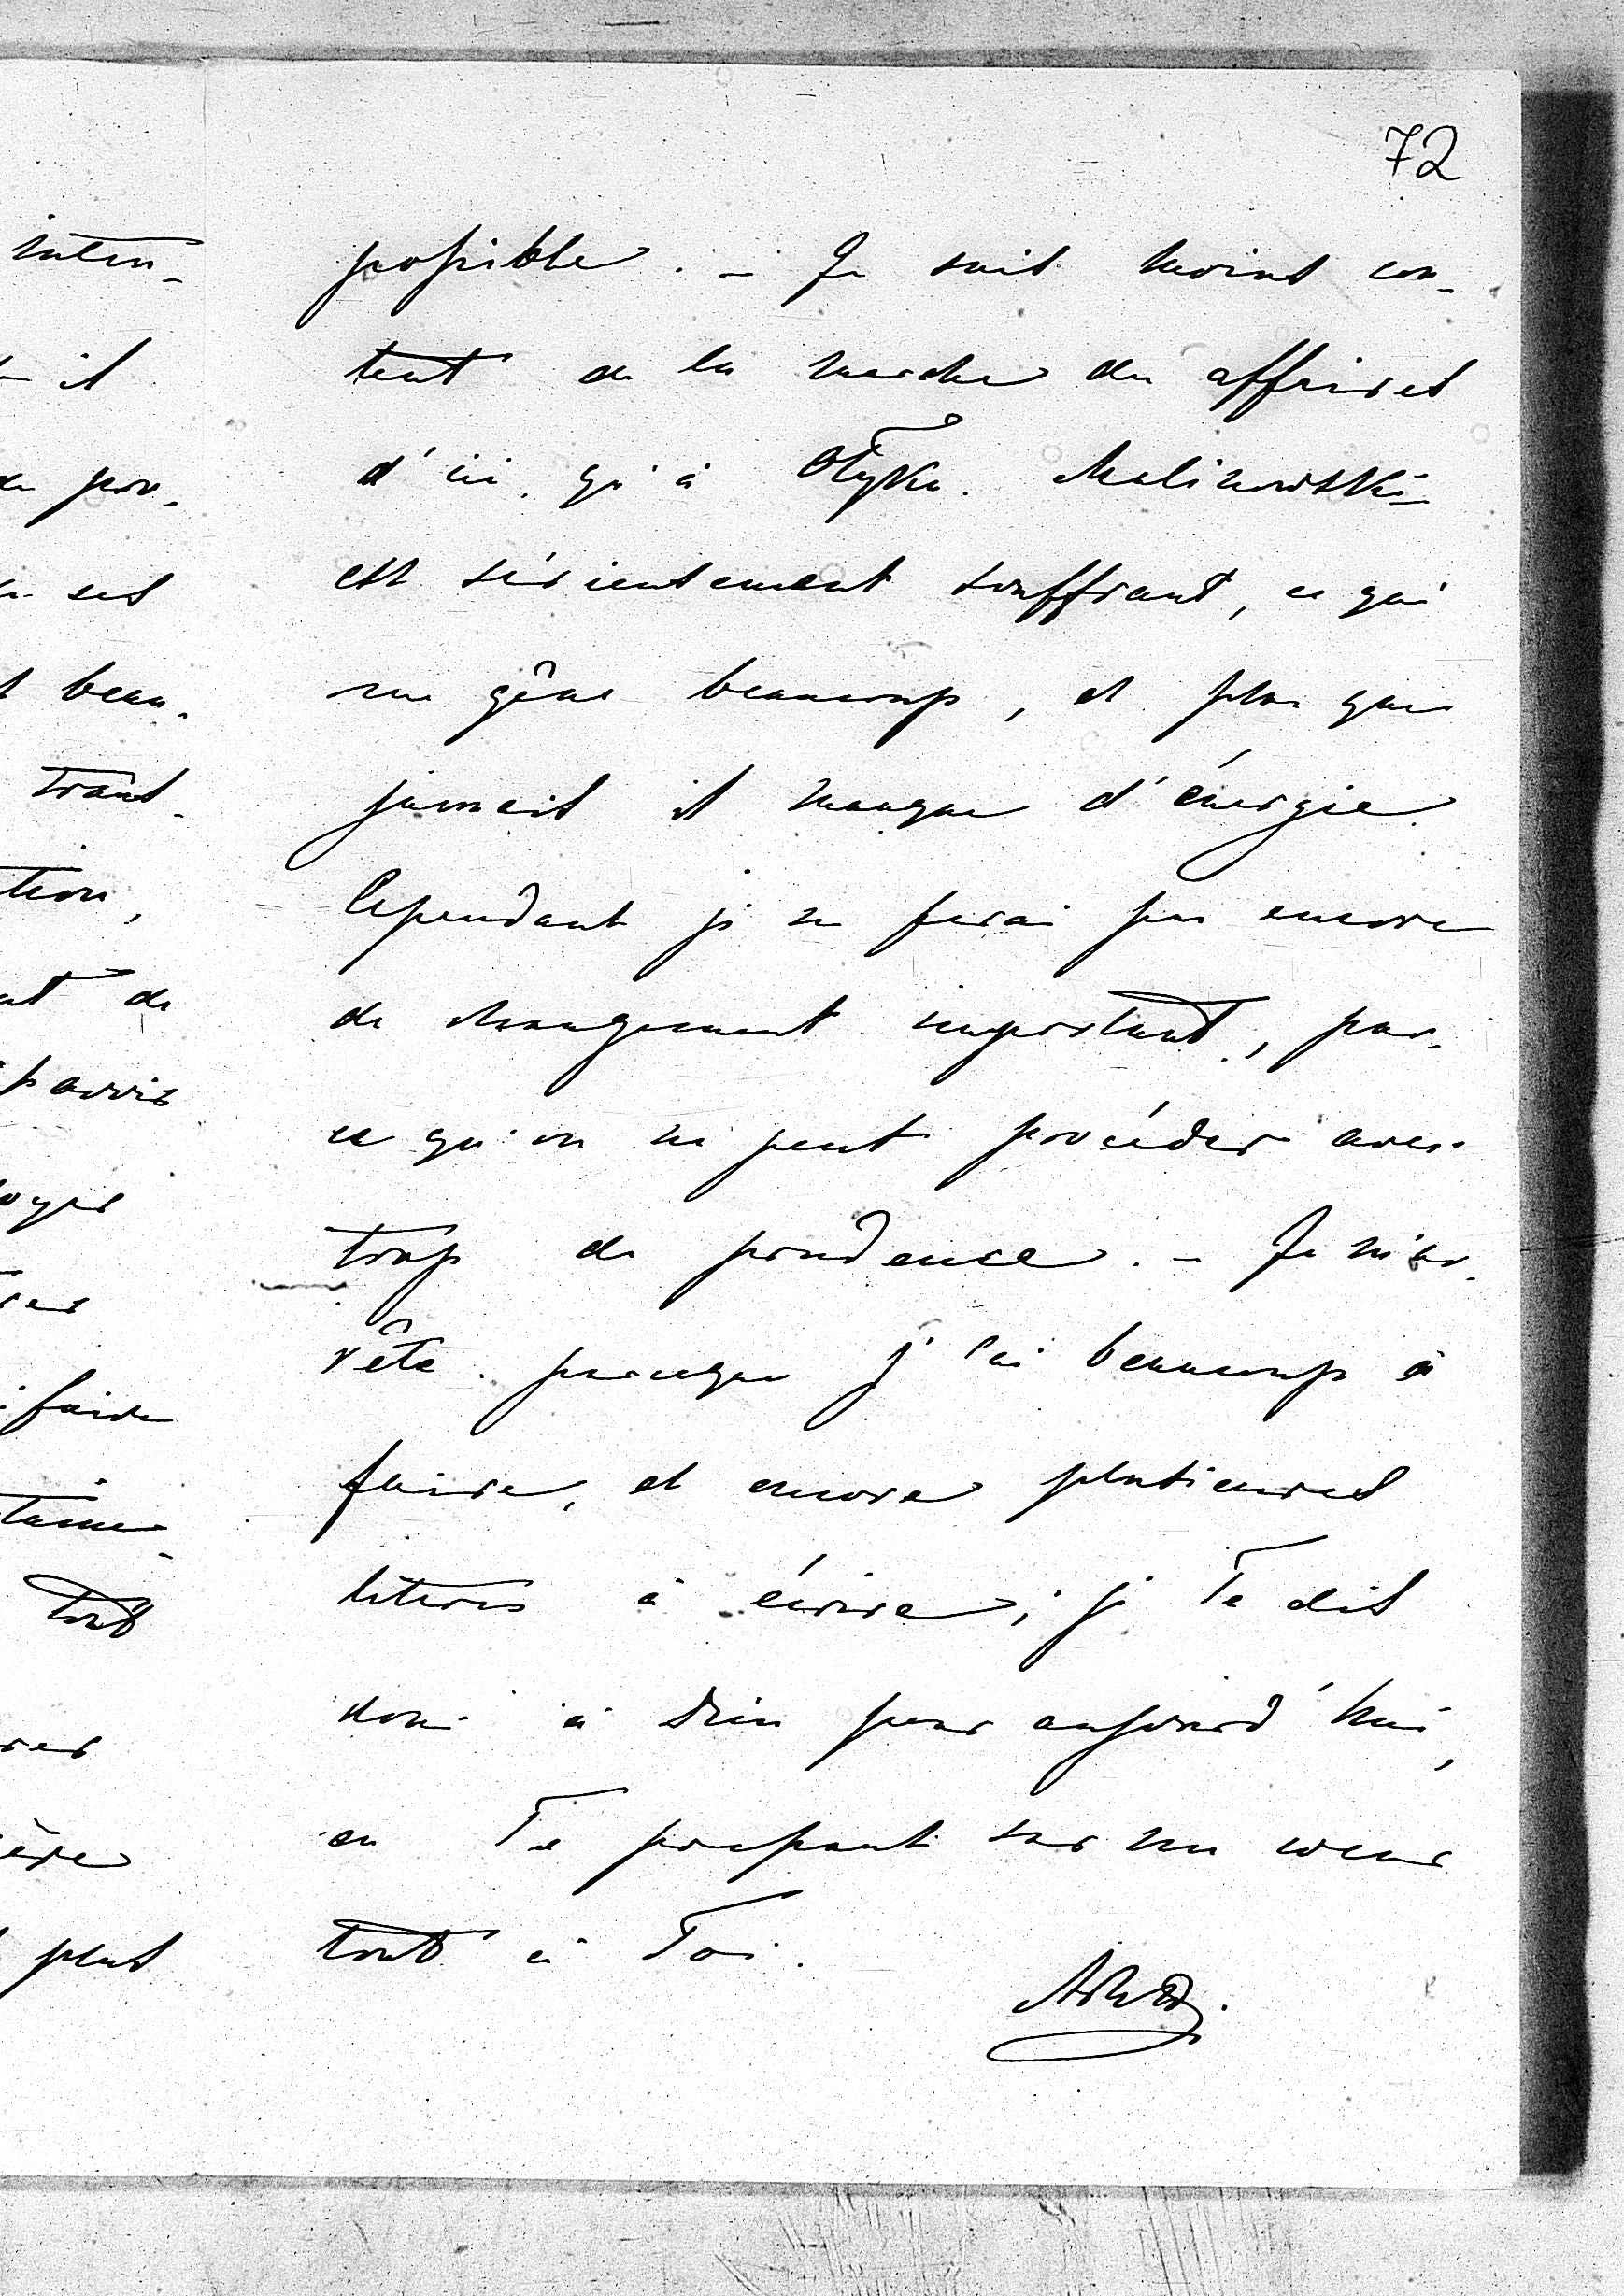 72
possible. – Je suis moins con-
tent de la marche des affaires
d'ici, qu'à Ołyka. Malinowski
est sérieusement souffrant, ce qui
me gêne beaucoup, et plus que
jamais il manque d'énergie.
Cependant je ne ferai pas encore
de changement important, par-
ce qu'on ne peut procéder avec
trop de prudence. – Je m'ar-
rête parceque j'ai beaucoup à
faire, et encore plusieurs
lettres à écrire; je Te dis
donc à Dieu pour aujourd'hui,
en Te pressant sur mon coeur
tout à Toi.
inten-
il
ses
beau-
trans-
tion,
de
faire
tout
plus